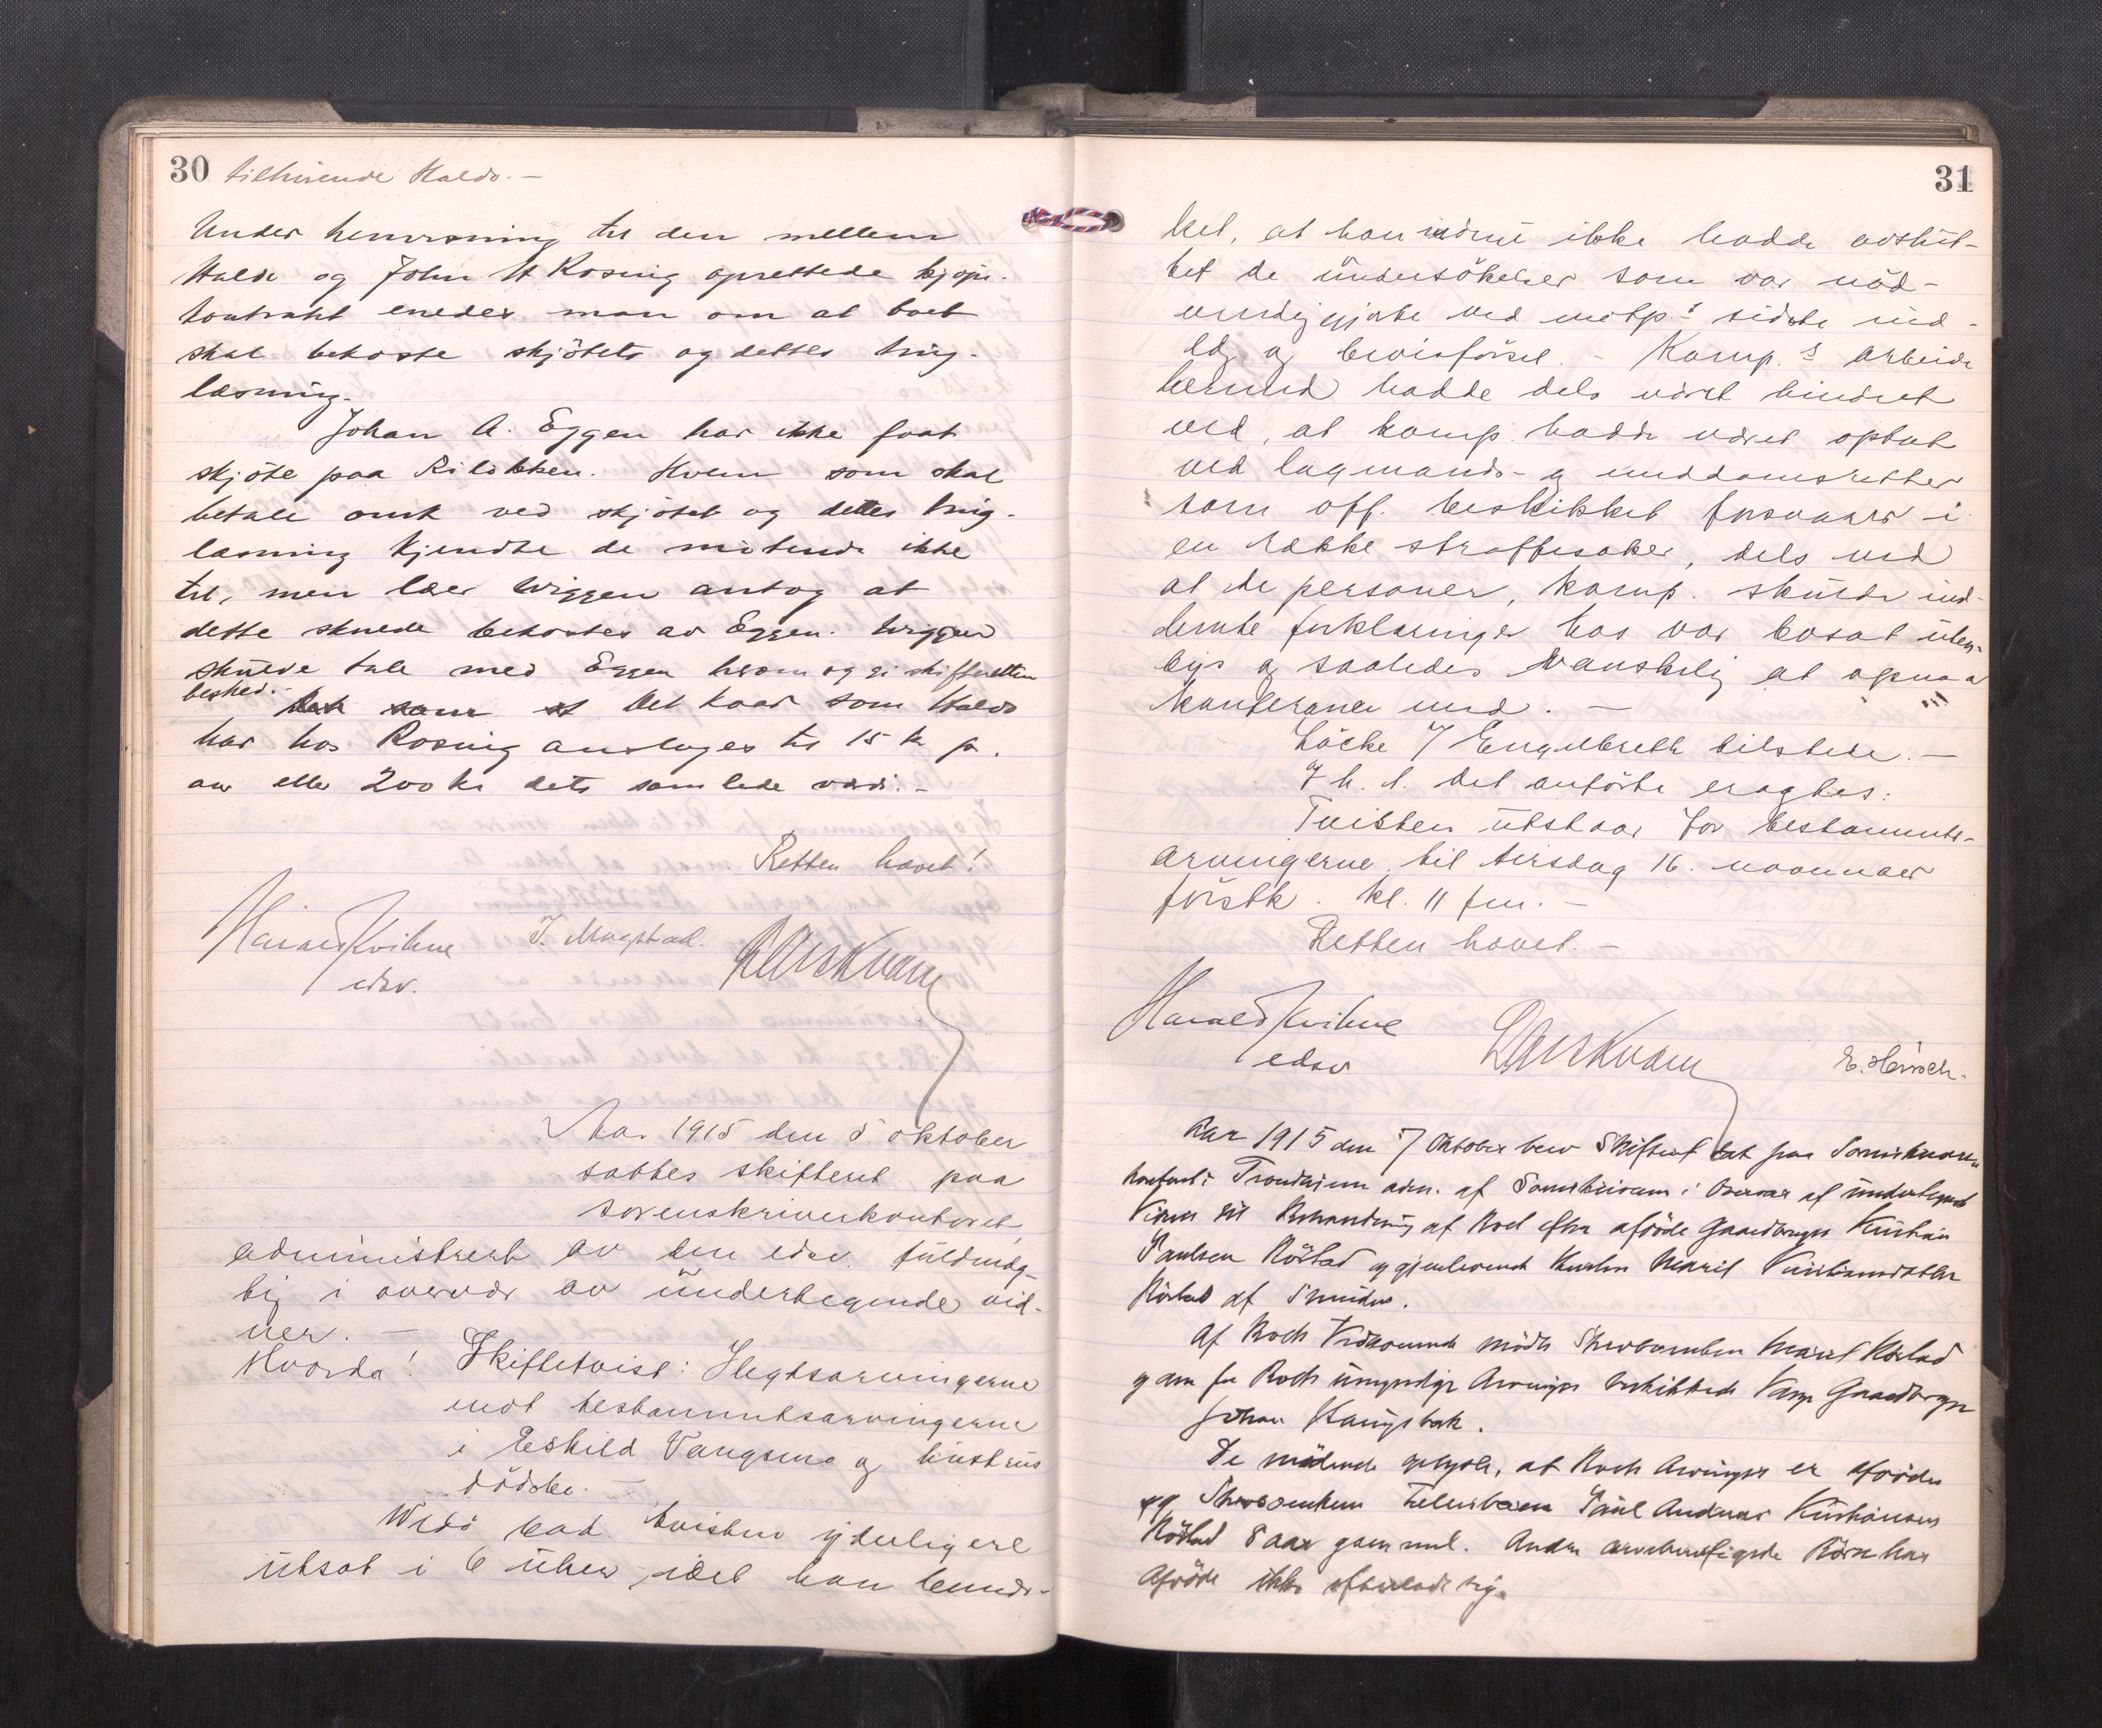 30 tilhørende Haldo. —
Under henvisning til den mellem
Haldo og John H Rosvig oprettede kjøpe-
kontrakt enedes man om at boet
skal bekoste skjøtets og dettes ting-
læsning.
Johan A. Eggen har ikke faat
skjøte paa Riløkken. Hvem som skal
betale omk ved skjøtet og dettes ting-
læsning kjendte de møtende ikke
til, men lær Wiggen antog at
dette skulde bekostes av Eggen. Wiggen
skulde tale med Eggen herom og gi skifteretten
besked. Det kaar som Haldo
har hos Rosvig ansloges til 15 kr p.
aar eller 200 kr dets samlede værdi. —
Retten hævet!
Harald Kvihne J. Magstad. Lars Kvam
edsv.
Aar 1915 den 5. oktober
sattes skifteret paa
sorenskriverkontoret,
administrert av den edsv. fuldmæg-
tig i overvær av undertegnede vid-
ner. —
Hvorda! Skiftetvist: Slegtsarvingerne
mot testamentsarvingerne
i Eskild Vangsmo og hustrus
dødsbo.
bad tvisten yderligere
utsat i 6 uker, idet han bemer-
31
ket, at han endnu ikke hadde avslut-
tet de undersøkelser som var nød-
vendiggjorte ved motp.s sidste ind-
læg og bevisførsel. — Komp.s arbeide
hermed hadde dels været hindret
ved, at komp. hadde været optat
ved lagmands- og meddomsretter
som off. beskikket forsvarer i
en række straffesaker, dels ved
at de personer, komp. skulde ind-
hente forklaringer hos var bosat uten-
bys og saaledes vanskelig at opnaa
konferance med. —
Løcke f Engelbreth tilstede. —
I h. t. det anførte eragtes:
Tvisten utstaar for testaments-
arvingerne til tirsdag 16. november
førstk. kl. 11 fm. —
Retten hævet. —
Harald Kvihne Lars Kvam E. Hirsch.
edsv
Aar 1915 den 7 Oktober blev Skifteret sat paa Sorenskriver
kontoret i Trondhjem adm. af Sorenskriveren i Overvær af undertegnede
Vidner til Behandling af Boet efter afdøde Gaardbruger Kristian
Paulsen Röstad og gjenlevende Marit Kristiansdatter
Röstad af
Af Boets Vedkommende mødte Marit Röstad
og som for Boets umyndige Arvinger beskikkede Værge Gaardbruger
Johan
De mødende opgav, at Boets Arvinger er afdødes
og Fællesbarn Paul Andreas Kristiansen
Röstad 8 aar gammel. Andre arveberettigede Börn har
Afdøde ikke efterladt sig.